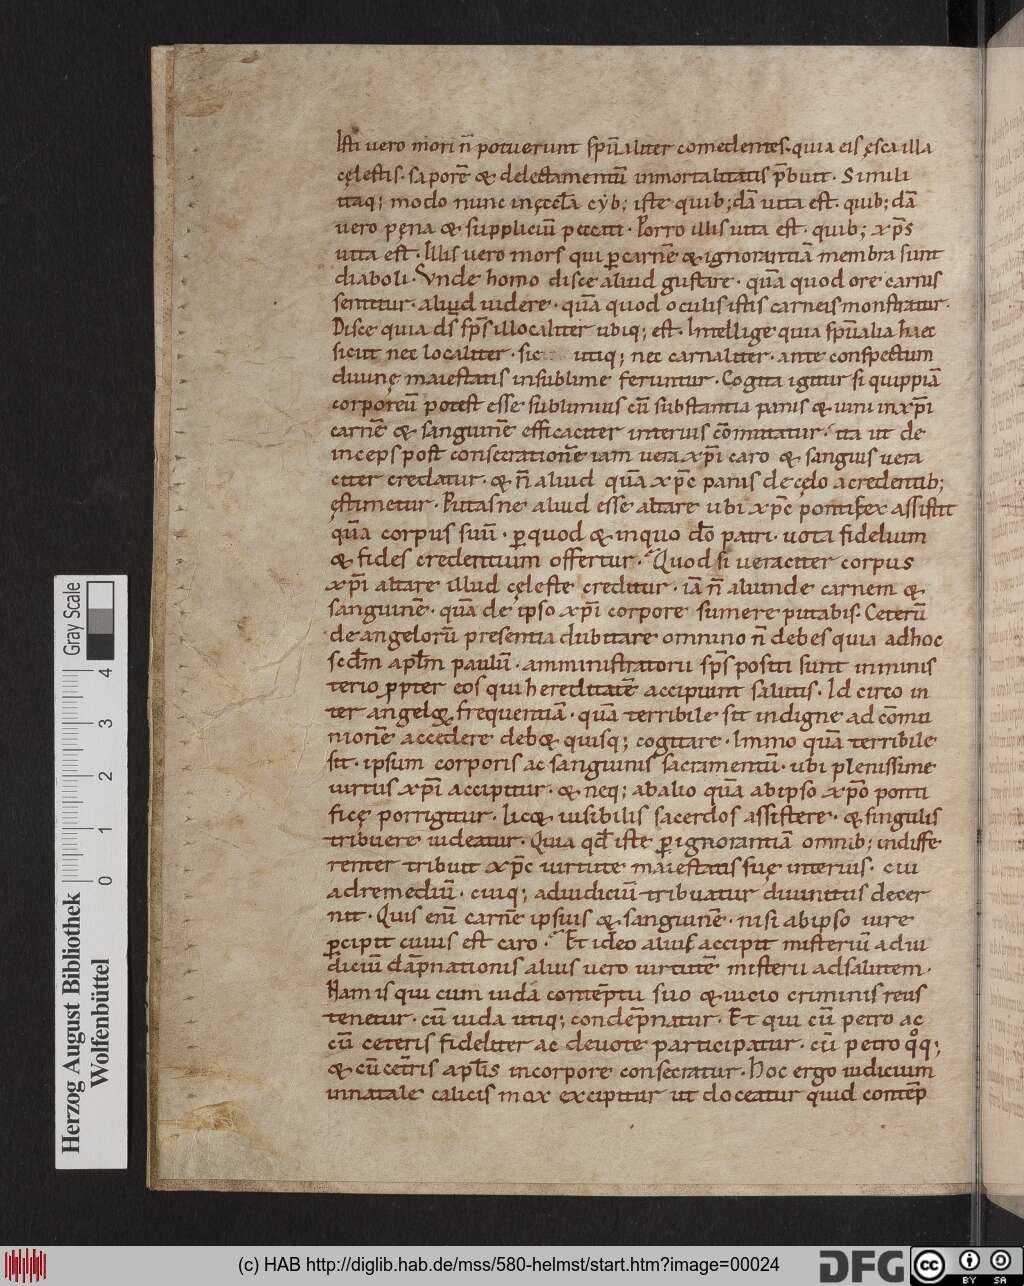 Isti uero mori n̄ potuerunt sp̄ualiter comedentes. quia eis ęsca illa
cęlestis. saporē & delectamentū inmortalitatis p̄buit. Simili
itaq; modo nunc in ęccl̄a cyb; iste quib;dā uita est. quib;dā
uero pęna & suppliciū peccati. Porro illis uita est. quib; xp̄s
uita est. Illis uero mors qui ꝑ carnē & ignorantiā membra sunt
diaboli. Vnde homo disce aliud gustare. quā quod ore carnis
sentitur. aliud uidere. quā quod oculis istis carneis monstratur.
Disce quia ds̄ sp̄s illocaliter ubiq; est. Intellige quia sp̄ualia haec
sicut nec localiter. sic utiq; nec carnaliter. ante conspectum
diuinę maiestatis in sublime feruntur. Cogita igitur si quippiā
corporeū potest esse sublimius cū substantia panis & uini in xp̄i
carnē & sanguinē efficaciter interius cōmutatur. ita ut de
inceps post consecrationē iam uera xp̄i caro & sanguis uera
citer credatur. & n̄ aliud quā xp̄c panis de cęlo a credentib;
ęstimetur. Putasne aliud esse altare ubi xp̄c pontifex assistit
quā corpus suū. ꝑ quod & in quo dō patri. uota fidelium
& fides credentium offertur. Quod si ueraciter corpus
xp̄i altare illud cęleste creditur. iā n̄ aliunde carnem &
sanguinē. quā de ipso xp̄i corpore sumere putabis. Ceterū
de angelorū presentia dubitare omnino n̄ debes quia adhoc
scdm̄ aplm̄ paulū. amministratorii sp̄s positi sunt in minis
terio ꝓpter eos qui hereditatē accipiunt salutis. Id circo in
ter angeloꝝ frequentiā. quā terribile sit indigne ad cōmu
nionē accedere deb& quisq; cogitare. Immo quā terribile
sit. ipsum corporis ac sanguinis sacramentū. ubi plenissime
uirtus xp̄i accipitur. & neq; ab alio quā ab ipso xp̄o ponti
ficę porrigitur. lic& uisibilis sacerdos assistere. & singulis
tribuere uideatur. Quia qd̄ iste ꝑ ignorantiā omnib; indiffe
renter tribuit xp̄c uirtute maiestatis suę interius. cui
ad remediū. cuiq; ad iudiciū tribuatur diuinitus decer
nit. Quis eni carnē ipsius & sanguinē. nisi ab ipso iure
ꝑcipit cuius est caro. Et ideo alius accipit misteriū ad iu
diciū dāpnationis alius uero uirtutē misterii ad salutem.
Nam is qui cum iuda contēptu suo & uicio criminis reus
tenetur. cū iuda utiq; condēpnatur. Et qui cū petro ac
cū ceteris fideliter ac deuote participatur. cū petro qoq;
& cū cet̄ris apl̄is in corpore consecratur. Hoc ergo iudicium
in natale calicis mox excipitur ut doceatur quid contēp
Gray Scale
4
3
2
1
0
Herzog August Bibliothek
Wolfenbüttel
(c) HAB http://diglib.hab.de/mss/580-helmst/start.htm?image=00024
DFG
cc
BY SA